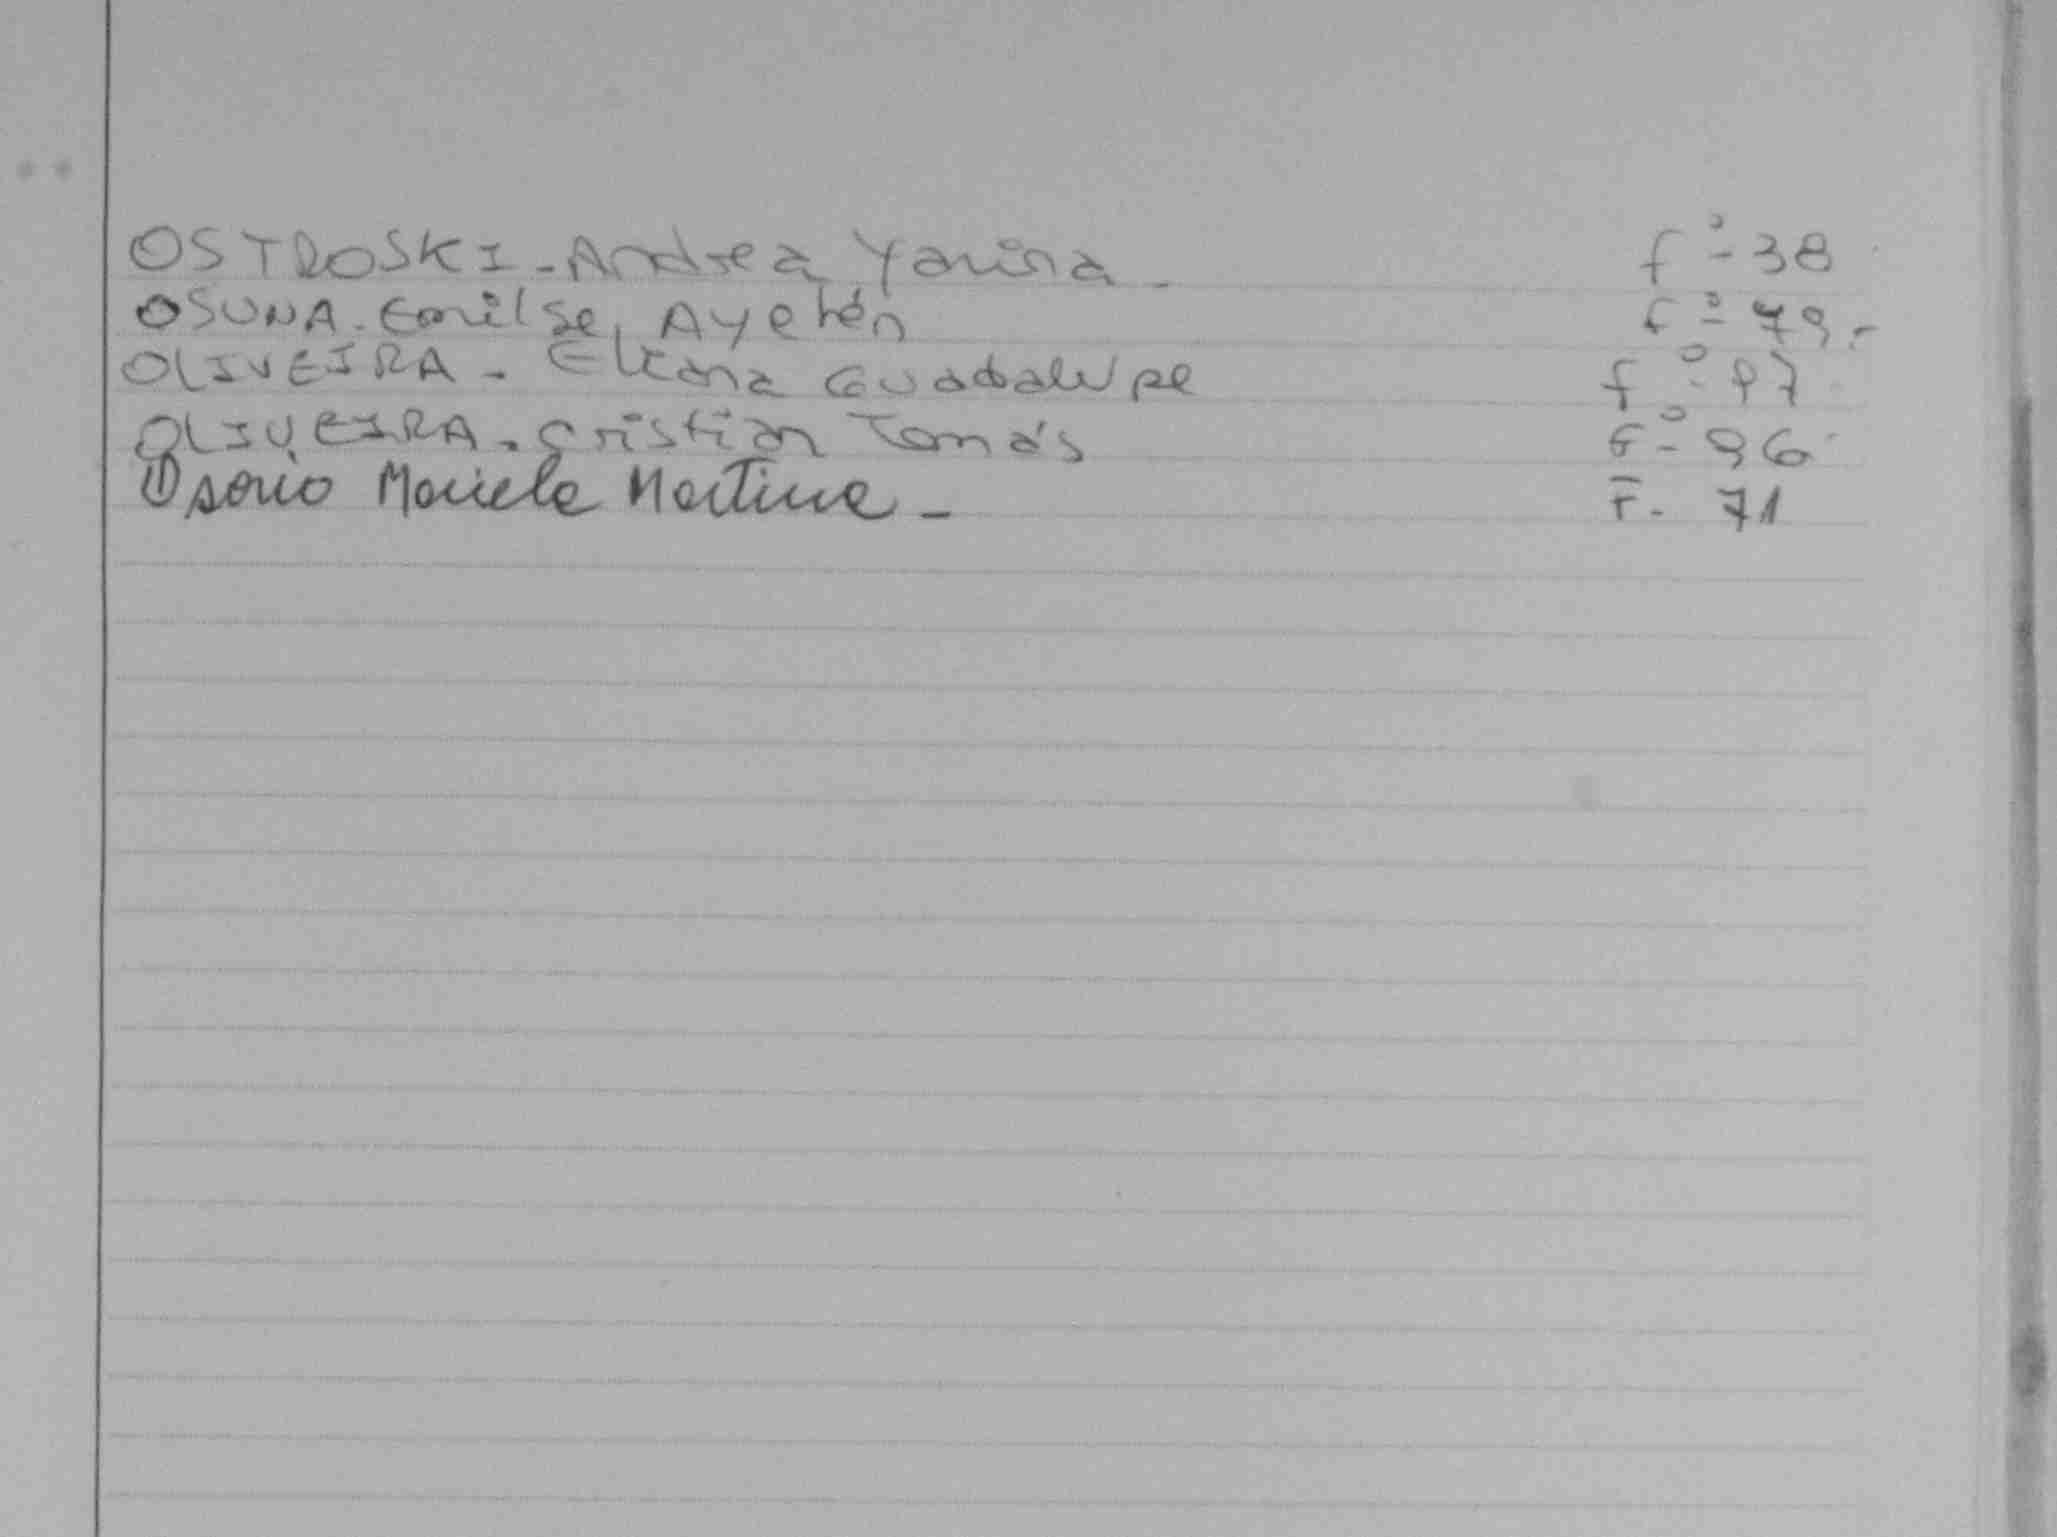 OSTROSKI - Andrea Yanina - fº - 38
OSUNA - Emilse Ayelén fº - 79.-
OLIVEIRA - Eliana Guadalupe fº - 97
OLIVEIRA - Cristian Tomás Fº - 96
Osorio Mariela Martina - F - 71